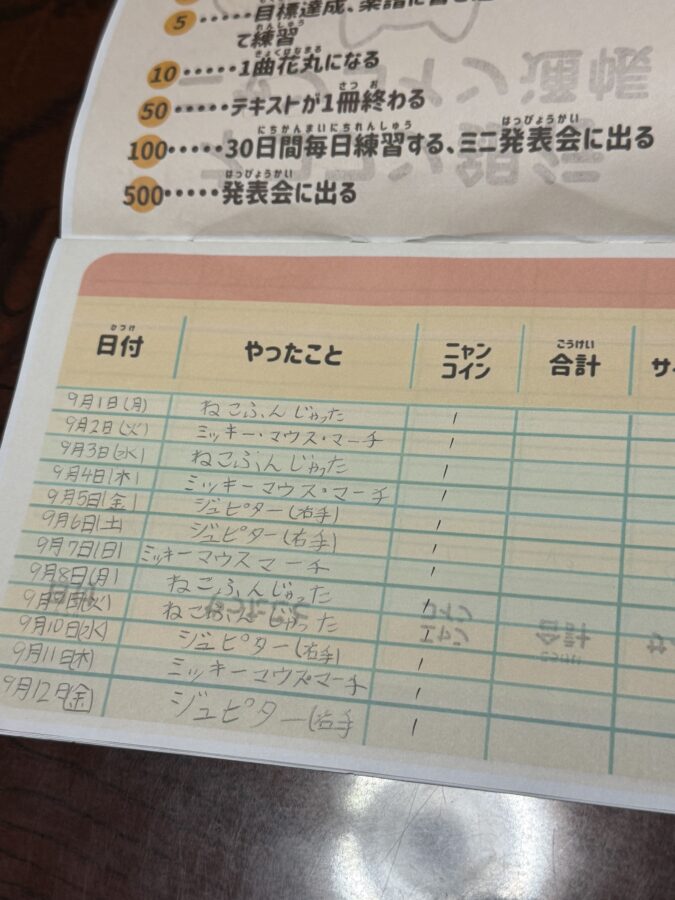 5・・・・・目標達成、
て練習
れんしゅう
10・・・・・1曲花丸になる
きょくはなまる
50・・・・・テキストが1冊終わる
さつ お
100・・・・・30日間毎日練習する、ミニ発表会に出る
にちかんまいにちれんしゅう はっぴょうかい
500・・・・・発表会に出る
はっぴょうかい
日付 やったこと ニャンコイン 合計
ひづけ ごうけい
9月1日(月) ねこふんじゃった 1
9月2日(火) ミッキー・マウス・マーチ 1
9月3日(水) ねこふんじゃった 1
9月4日(木) ミッキーマウス・マーチ 1
9月5日(金) ジュピター(右手) 1
9月6日(土) ジュピター(右手) 1
9月7日(日) ミッキーマウスマーチ 1
9月8日(月) ねこふんじゃった 1
9月9日(火) ねこふんじゃった 1
9月10日(水) ジュピター(右手) 1
9月11日(木) ミッキーマウスマーチ 1
9月12日(金) ジュピター(右手 1